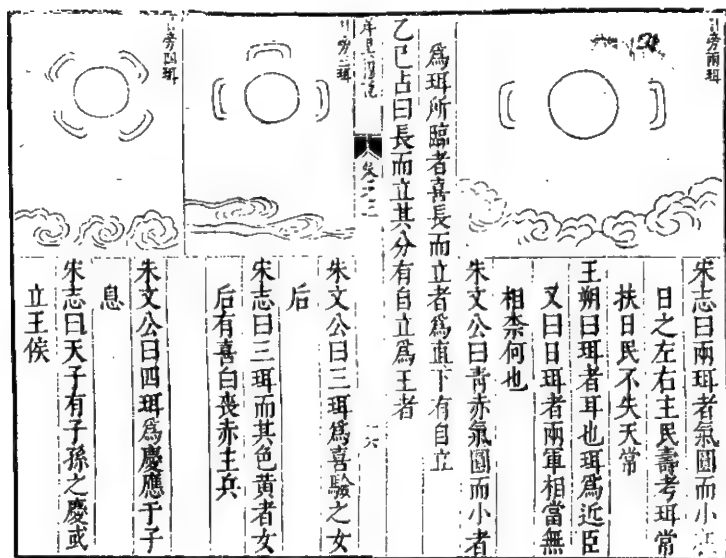 日旁兩珥
宋志曰兩珥者氣圓而小在
日之左右主民壽考珥常
扶日民不失天常
王朔曰珥者耳也珥為近臣
又曰日珥者兩軍相當無
相柰何也
朱文公曰青赤氣圓而小者
為珥所臨者喜長而立者為直下有自立
乙巳占曰長而立其分有自立為王者
日旁三珥
朱文公曰三珥為喜驗之女
后
宋志曰三珥而其色黃者女
后有喜白喪赤主兵
日旁四珥
朱文公曰四珥為慶應于子
息
宋志曰天子有子孫之慶或
立王侯